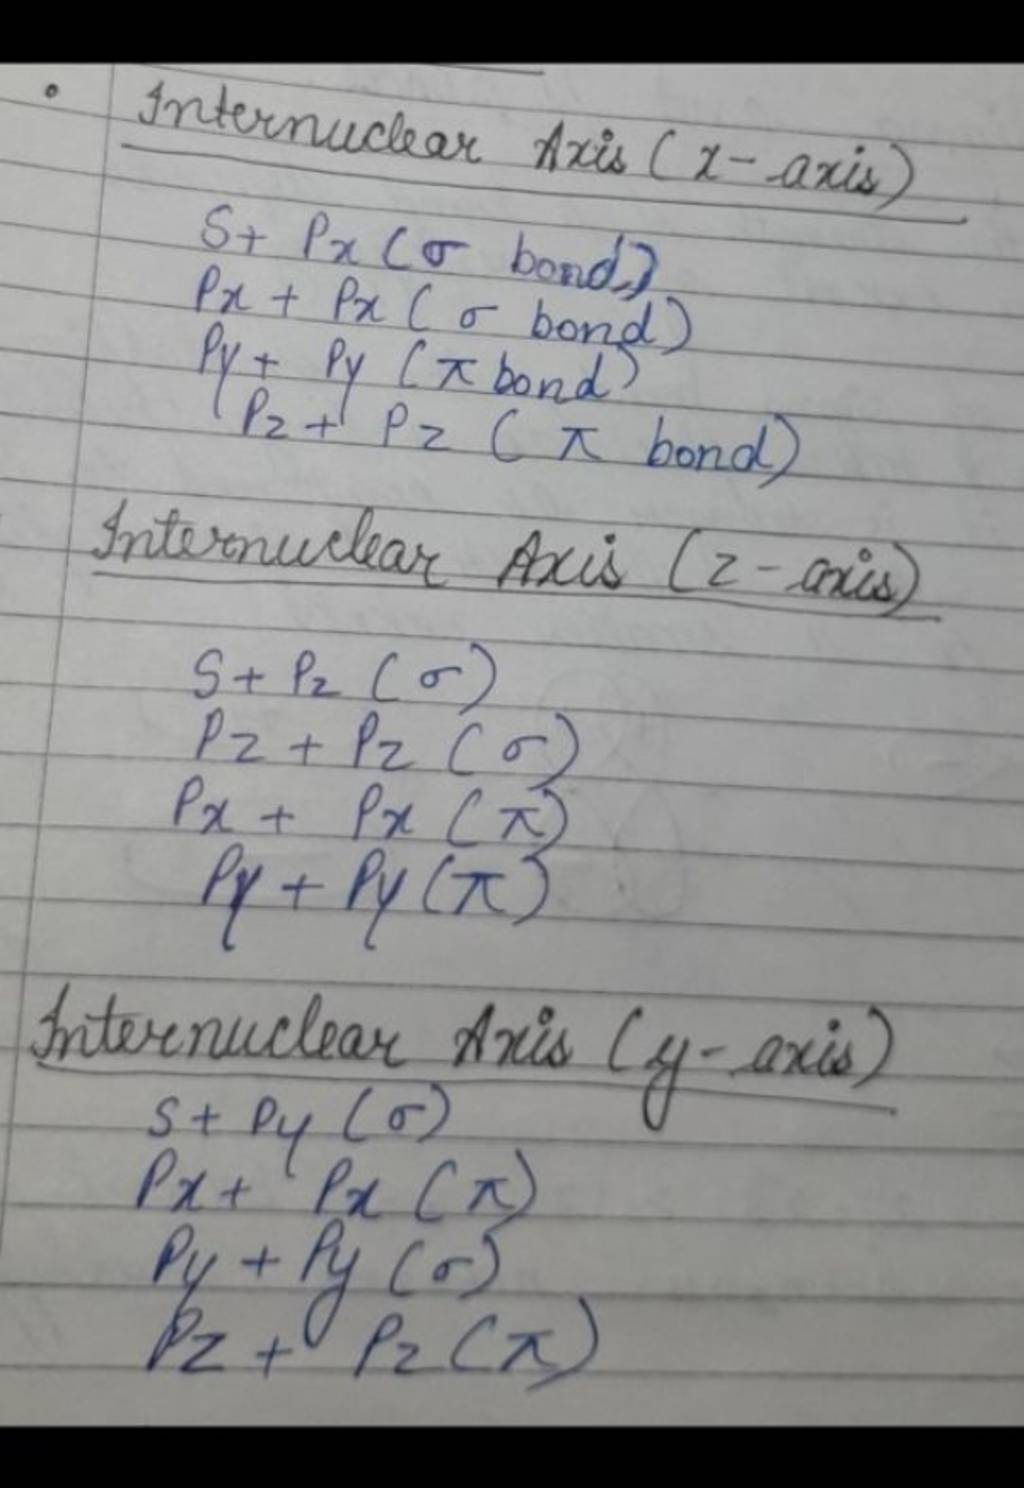 • Internuclear Axis (x-axis)
S+ Px (σ bond)
Px + Px (σ bond)
Py + Py (π bond)
Pz + Pz (π bond)
Internuclear Axis (z-axis)
S + Pz (σ)
Pz + Pz (σ)
Px + Px (π)
Py + Py (π)
Internuclear Axis (y-axis)
S + Py (σ)
Px + Px (π)
Py + Py (σ)
Pz + Pz (π)